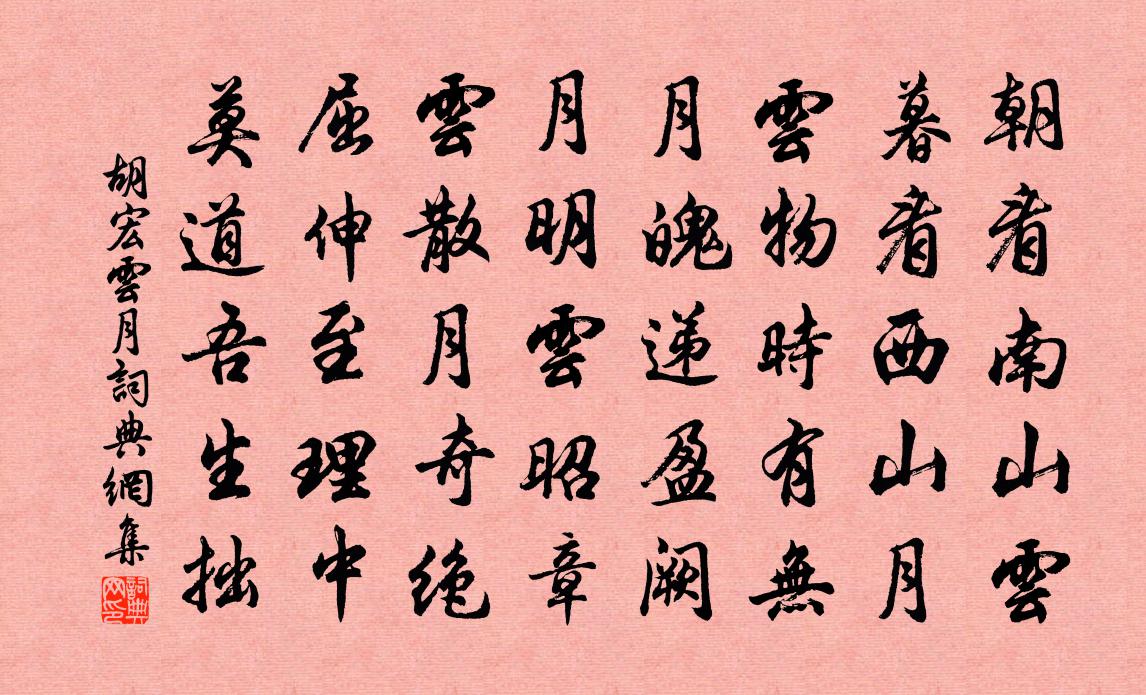 朝看南山雲
暮看西山月
雲物時有無
月魄递盈阙
月明雲昭章
雲散月奇绝
屈伸至理中
莫道吾生拙
胡宏雲月詞典網集
詞典网印